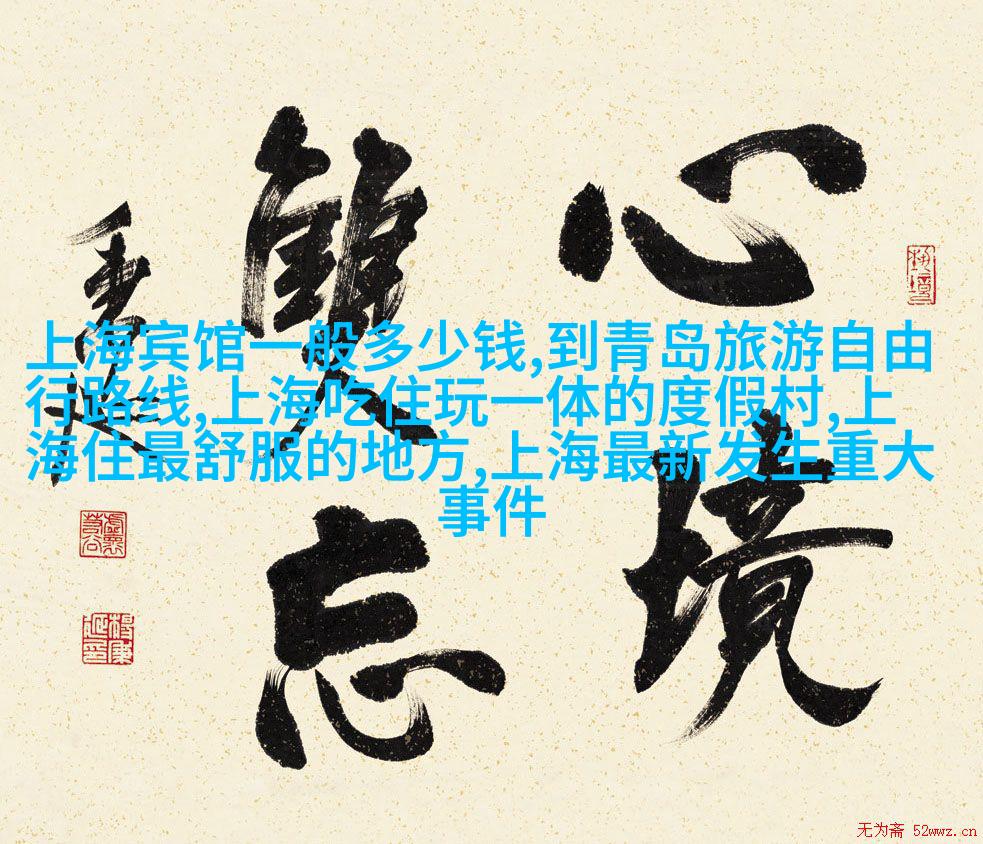 心境
雙忘
上海宾馆一般多少钱,到青岛旅游自由
行路线,上海吃住玩一体的度假村,上
海住最舒服的地方,上海最新发生重大
事件
无为斋 52wwz.cn